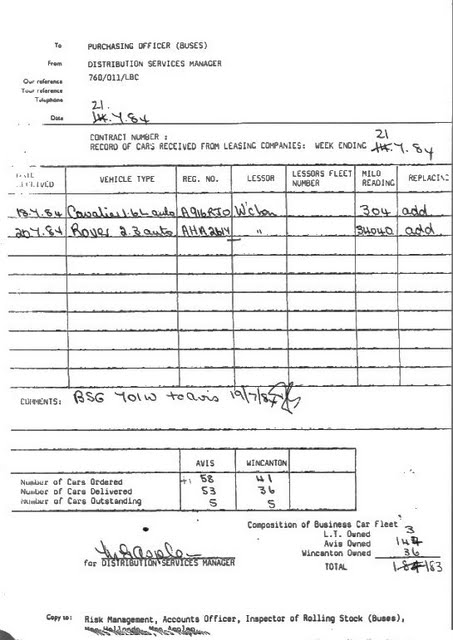 To PURCHASING OFFICER (BUSES)
From DISTRIBUTION SERVICES MANAGER
Our reference 760/011/LBC
Your reference
Telephone
21.
Date 14.7.84
CONTRACT NUMBER :
21
RECORD OF CARS RECEIVED FROM LEASING COMPANIES: WEEK ENDING 14.7.84
DATE RECEIVED VEHICLE TYPE REG. NO. LESSOR LESSORS FLEET NUMBER MILO READING REPLACING
18.7.84 Cavalier 1.6L auto A916RJO W'ton 304 add
20.7.84 Rover 2.3 auto AHA261Y " 34040 add
COMMENTS: BSG 701W to Avis 19/7/84
AVIS WINCANTON
Number of Cars Ordered +1 58 41
Number of Cars Delivered 53 36
Number of Cars Outstanding 5 5
Composition of Business Car Fleet
L.T. Owned 3
Avis Owned 144
Wincanton Owned 36
TOTAL 184 183
for DISTRIBUTION SERVICES MANAGER
Copy to: Risk Management, Accounts Officer, Inspector of Rolling Stock (Buses),